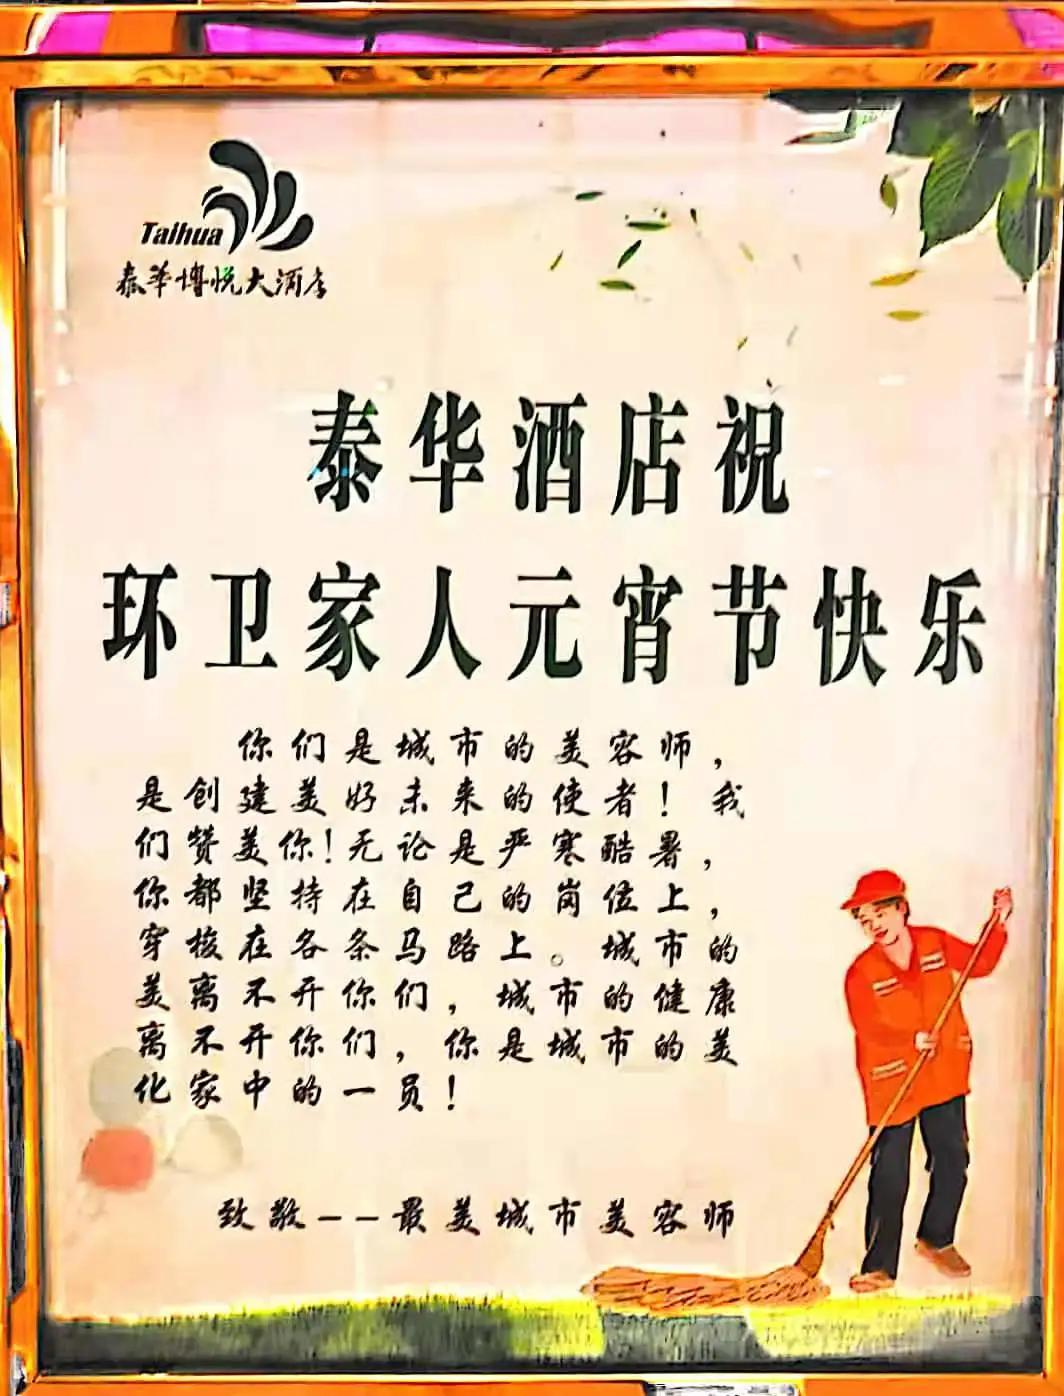 Taihua
泰华博悦大酒店
泰华酒店祝
环卫家人元宵节快乐
你们是城市的美容师，
是创建美好未来的使者！我
们赞美你！无论是严寒酷暑，
你都坚持在自己的岗位上，
穿梭在各条马路上。城市的
美离不开你们，城市的健康
离不开你们，你是城市的美
化家中的一员！
致敬--最美城市美容师